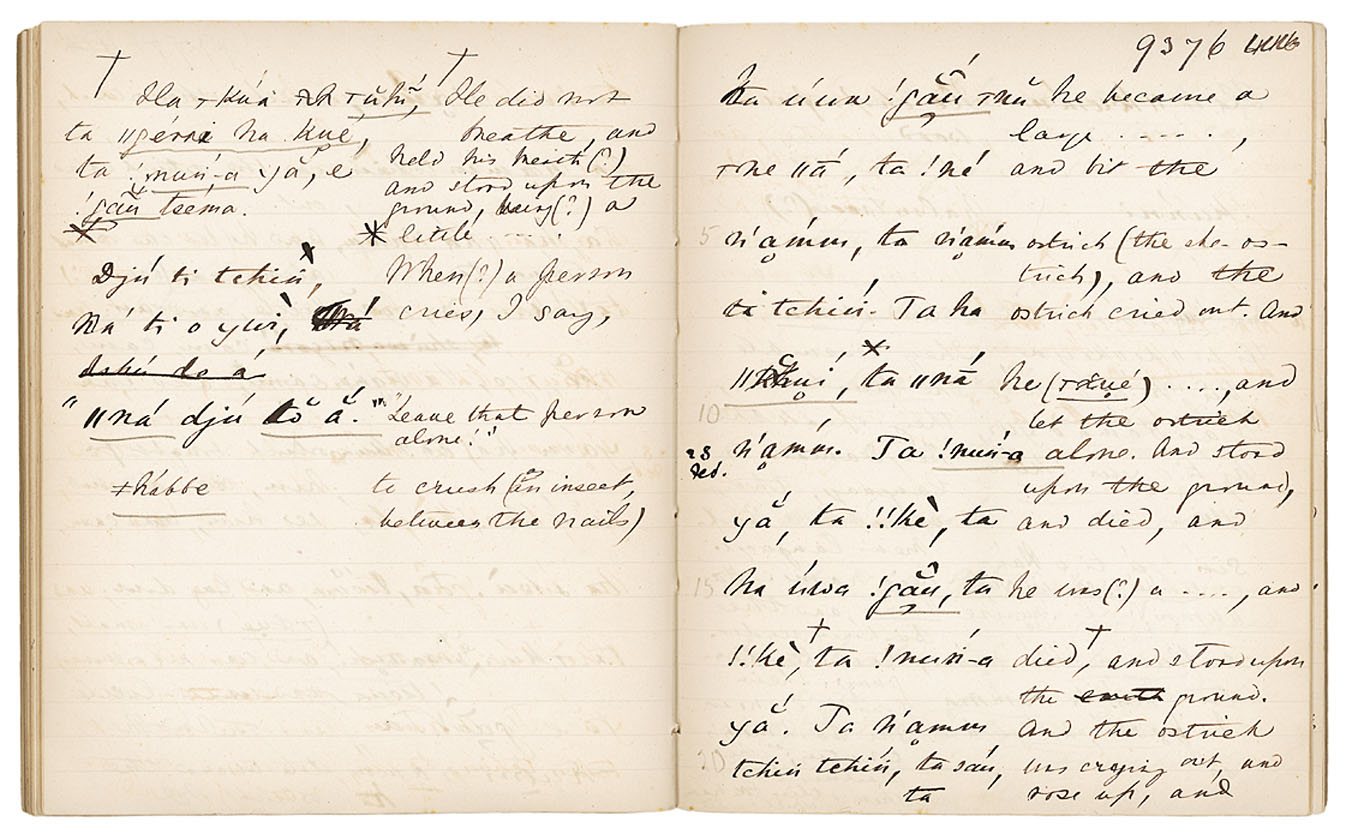 Ha ⊤kúi ⊤ŭhĩ, He did not
ta "gérri ha kue, breathe, and
held his breath(?)
ta !nuń-a yă, é and stood upon the
!gãŭ tsema. ground, being(?) a
little .....
Djú ti tchiń, When(?) a person
Ná ti o ywi, cries, I say,
"‖ná djú tŏ ă." "Leave that person
alone!"
≠kabbe to crush (an insect,
between the nails)
9376
ta úwa !gãŭ ⊤nŭ he became a
large ....,
⊤he ‖ā, ta !né and bit the
5 ń́amus, ta ń́amus ostrich (the she-os-
trich), and the
ti tchiń. Ta ha ostrich cried out. And
ta ‖ná he (⊤ŭué) ...., and
10 let the ostrich
23 ń́amus. Ta !nuń-a alone. And stood
Dec. upon the ground,
yă, ta !!kè, ta and died, and
15 ha úwa !gãŭ, ta he was(?) a ...., and
!!kè, ta !nuń-a died, and stood upon
the earth ground.
yă. Ta ń́amus And the ostrich
20 tchiń tchiń, ta sáu, was crying out, and
ta rose up, and